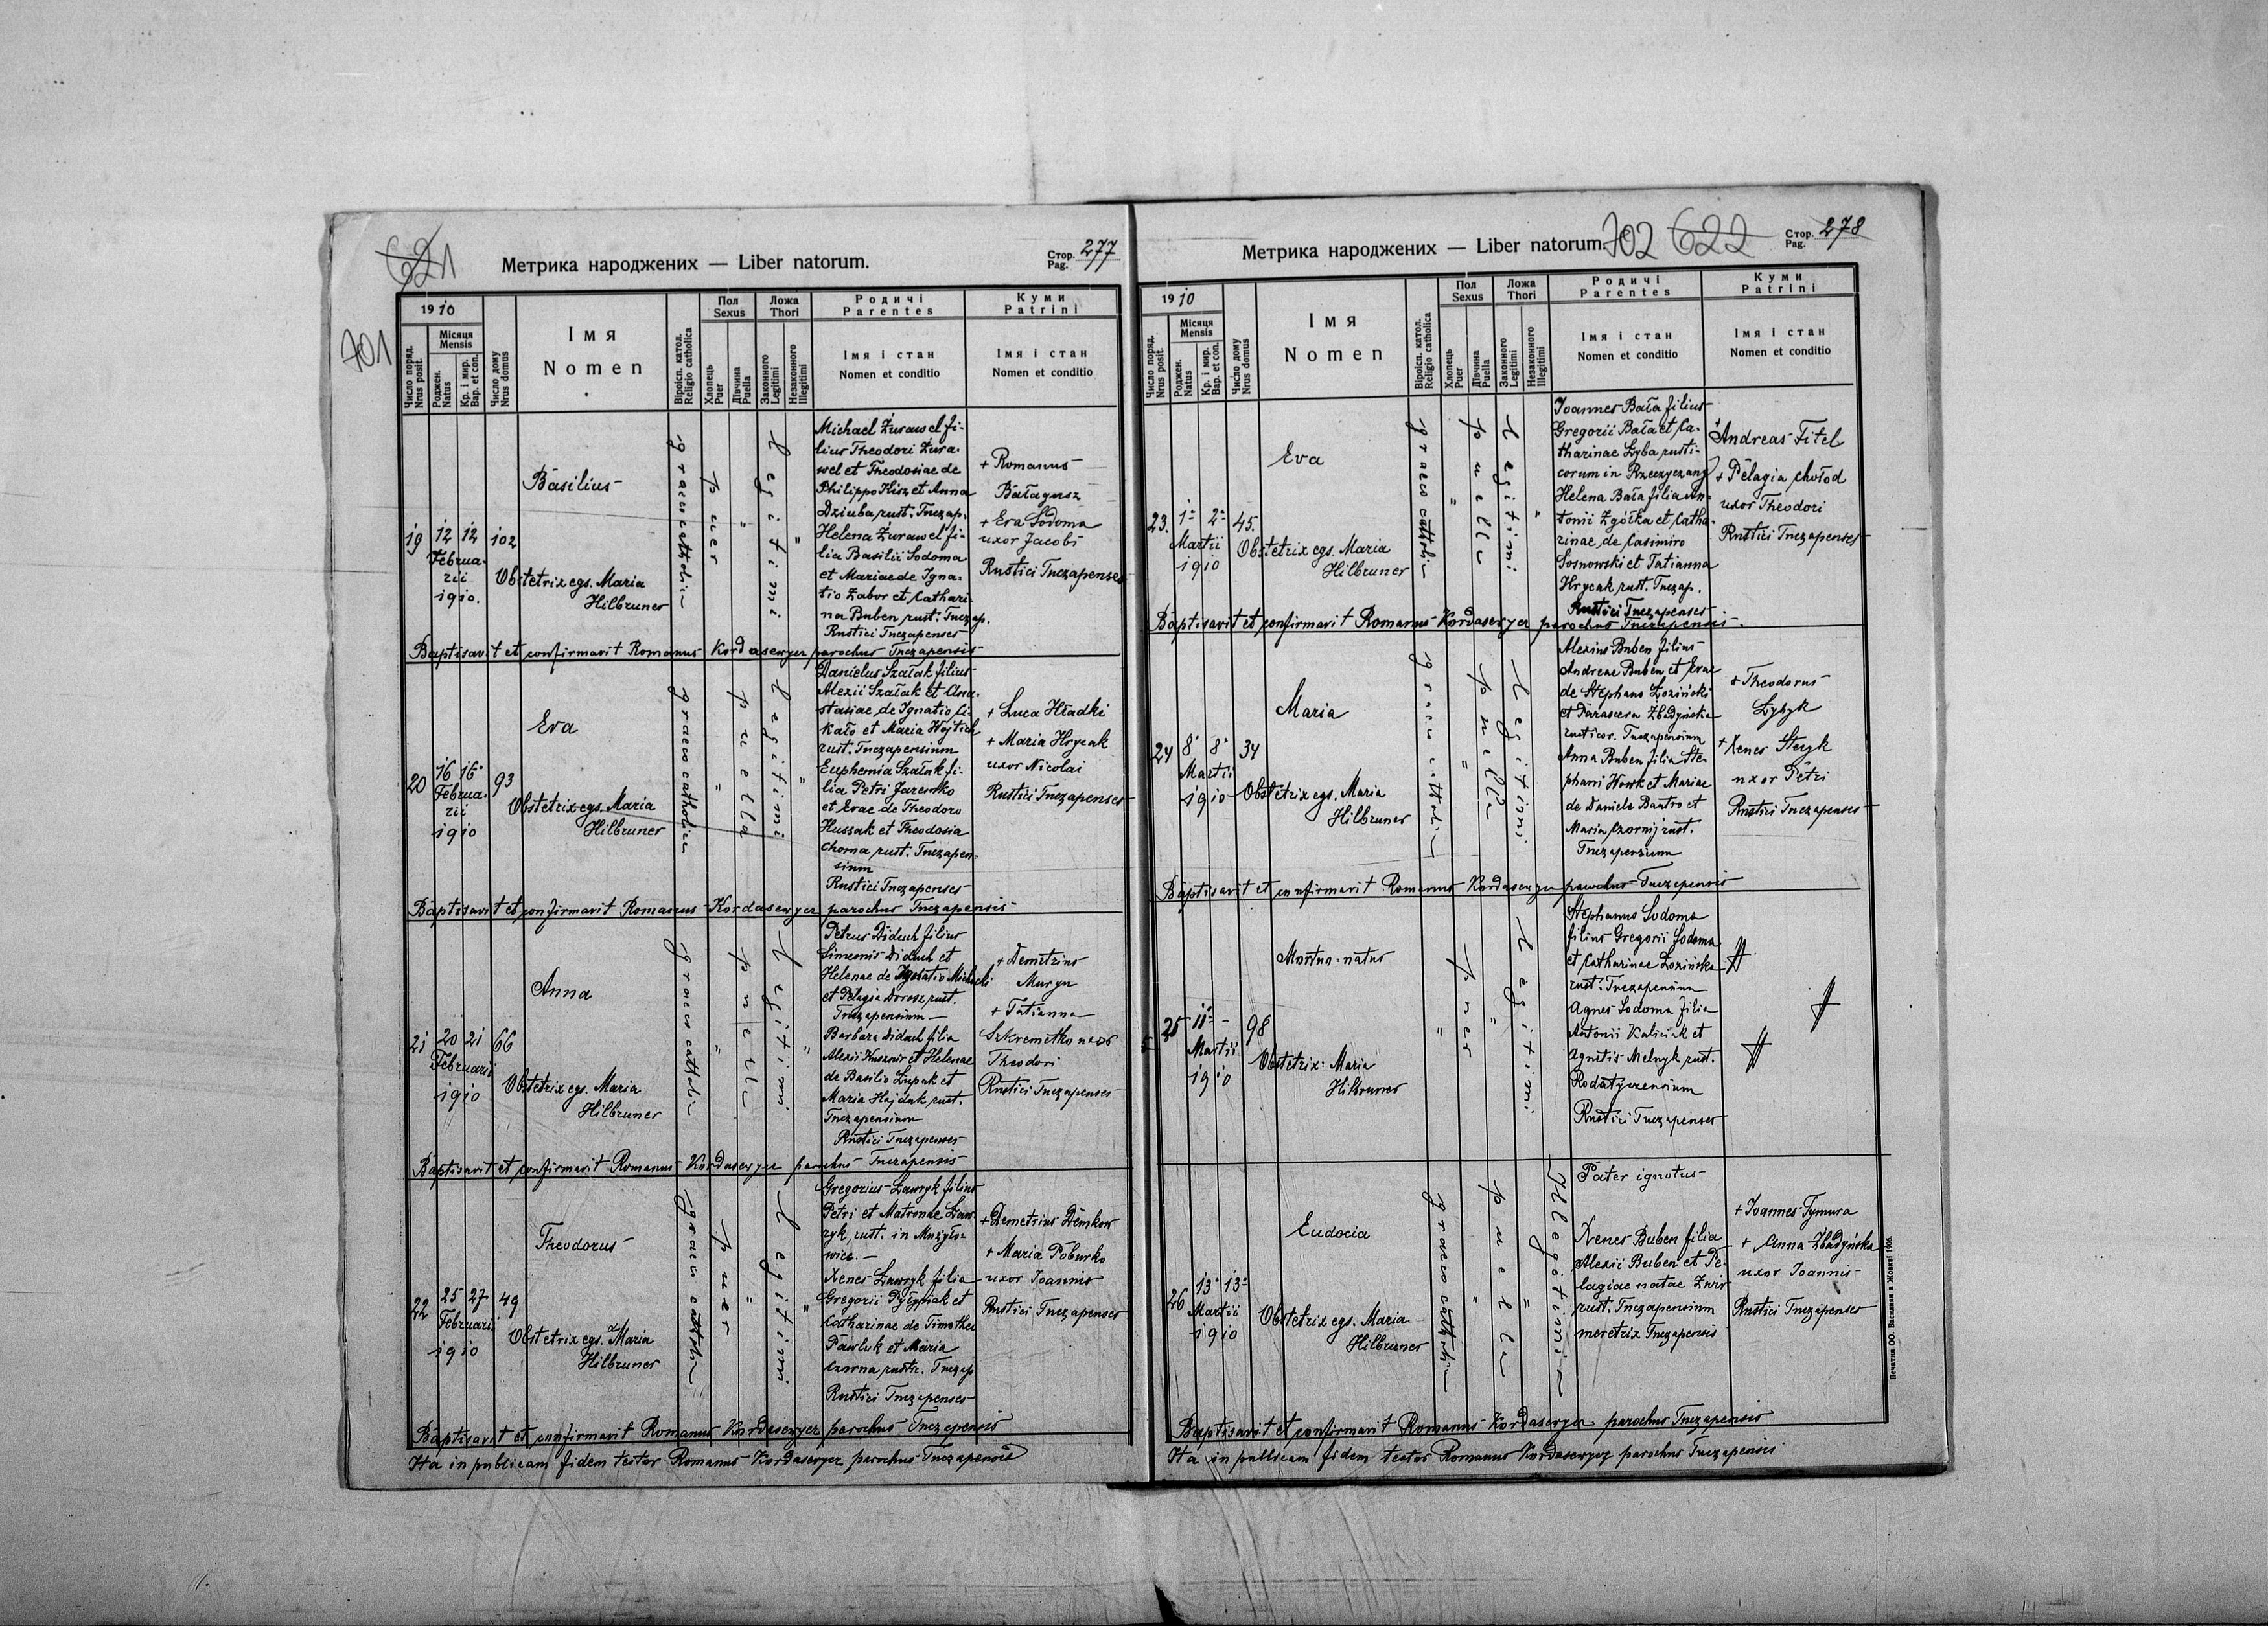 621
701
Метрика народжених — Liber natorum.
Стор. Pag. 277
1910
Місяця Mensis
Число поряд. Nrus posit.
Роджен. Natus
Кр. і мир. Bap. et con.
Число дому Nrus domus
Імя
Nomen
Віроісп. катол. Religio catholica
Пол Sexus
Хлопець Puer
Дівчина Puella
Ложа Thori
Законного Legitimi
Незаконного Illegitimi
Родичі Parentes
Імя і стан
Nomen et conditio
Куми Patrini
Імя і стан
Nomen et conditio
19
12 12
Februa-
rii
1910.
102
Basilius
Obstetrix egs. Maria
Hilbruner
graeco catholica
puer
"
legitimi
"
Michael Żurawel fi-
lius Theodori Żura-
wel et Theodosiae de
Philippo Kisz et Anna
Dziuba, rust. Tuczap.
Helena Żurawel fi-
lia Basilii Sodoma
et Mariae de Igna-
tio Zabor et Cathari-
na Buben, rust. Tuczap.
Rustici Tuczapenses
+ Romanus
Bałagusz
+ Eva Sodoma
uxor Jacobi
Rustici Tuczapenses
Baptisavit et confirmavit Romanus Kordasewycz parochus Tuczapensis
20
16 16
Februa-
rii
1910
93
Eva
Obstetrix egs. Maria
Hilbruner
graeco catholica
"
puella
legitimi
"
Danielus Szałak filius
Alexii Szałak et Ana-
stasiae de Ignatio Ci-
kało et Maria Wojtich
rust. Tuczapensium
Euphemia Szałak fi-
lia Petri Jaremko
et Evae de Theodoro
Hussak et Theodosia
Choma, rust. Tuczapen-
sium
Rustici Tuczapenses
+ Luca Hładki
+ Maria Hrycak
uxor Nicolai
Rustici Tuczapenses
Baptisavit et confirmavit Romanus Kordasewycz parochus Tuczapensis
21
20 21
Februarii
1910
66
Anna
Obstetrix egs. Maria
Hilbruner
graeco catholica
"
puella
legitimi
"
Petrus Diduch filius
Simeonis Diduch et
Helenae de Ignatio
et Pelagia Dorosz rust.
Tuczapensium —
Barbara Diduch filia
Alexii Kusznir et Helenae
de Basilio Łupak et
Maria Hajduk rust.
Tuczapensium
Rustici Tuczapenses
+ Demetrius
Muryn
+ Tatianna
Szkremetko uxor
Theodori
Rustici Tuczapenses
Baptisavit et confirmavit Romanus Kordasewycz parochus Tuczapensis
22
25 27
Februarii
1910
49
Theodorus
Obstetrix egs. Maria
Hilbruner
graeco cathol.
puer
"
legitimi
"
Gregorius Ławryk filius
Petri et Matronae Ław-
ryk, rust. in Mużyło-
wice. —
Xenes Ławryk filia
Gregorii
Catharinae de Timotheo
Pawluk et Maria
Czorna, rustic. Tuczap
Rustici Tuczapenses
+ Demetrius Demkow
+ Maria Poburko
uxor Joannis
Rustici Tuczapenses
Baptisavit et confirmavit Romanus Kordasewycz parochus Tuczapensis
Ita in publicam fidem testor Romanus Kordasewycz parochus Tuczapensis
Метрика народжених — Liber natorum.
702 622
Стор. Pag. 278
1910
Місяця Mensis
Число поряд. Nrus posit.
Роджен. Natus
Кр. і мир. Bap. et con.
Число дому Nrus domus
Імя
Nomen
Віроісп. катол. Religio catholica
Пол Sexus
Хлопець Puer
Дівчина Puella
Ложа Thori
Законного Legitimi
Незаконного Illegitimi
Родичі Parentes
Імя і стан
Nomen et conditio
Куми Patrini
Імя і стан
Nomen et conditio
23.
1 2
Martii
1910
45.
Eva
Obstetrix egs. Maria
Hilbruner
graeco catholica
"
puella
legitimi
"
Joannes Bała filius
Gregorii Bała et Ca-
tharinae Łyba, rusti-
corum in
Helena Bała filia An-
tonii Zgółka et Catha-
rinae, de Casimiro
Sosnowski et Tatianna
Hrycak rust. Tuczap.
Rustici Tuczapenses
+ Andreas Fitel
+ Pelagia Chołod
uxor Theodori
Rustici Tuczapenses
Baptisavit et confirmavit Romanus Kordasewycz parochus Tuczapensis.
24
8 8
Martii
1910
34
Maria
Obstetrix egs. Maria
Hilbruner
graeco catholica
"
puella
legitimi
Alexius Buben filius
Andreae Buben et Evae
de Stephano Łoziński
et Parascera Zbadyńska
rusticor. Tuczapensium
Anna Buben filia Ste-
phani Howk et Mariae
de Daniele Bantro et
Maria Czornij rust.
Tuczapensium
+ Theodorus
Łyżyk
+ Xenes Steryk
uxor Petri
Rustici Tuczapenses
Baptisavit et confirmavit Romanus Kordasewycz parochus Tuczapensis
25
11 -
Martii
1910
98
Mortuo-natus
Obstetrix: Maria
Hilbruner
puer
"
"
legitimi
Stephanus Sodoma
filius Gregorii Sodoma
et Catharinae Łozińska
rust. Tuczapensium
Agnes Sodoma filia
Antonii Kaliciak et
Agnetis Melnyk, rust.
Rodatyczensium
Rustici Tuczapenses
26
13 13
Martii
1910
Eudocia
Obstetrix egs. Maria
Hilbruner
graeco catholica
"
puella
"
Illegitimi
Pater ignotus
Xenes Buben filia
Alexii Buben et Pe-
lagiae natae
rust. Tuczapensium
meretrix Tuczapensis
+ Joannes Tymura
+ Anna Zbadyńska
uxor Joannis
Rustici Tuczapenses
Baptisavit et confirmavit Romanus Kordasewycz parochus Tuczapensis
Ita in publicam fidem testor Romanus Kordasewycz parochus Tuczapensis
Печатня ОО. Василиян в Жовкві 1906.